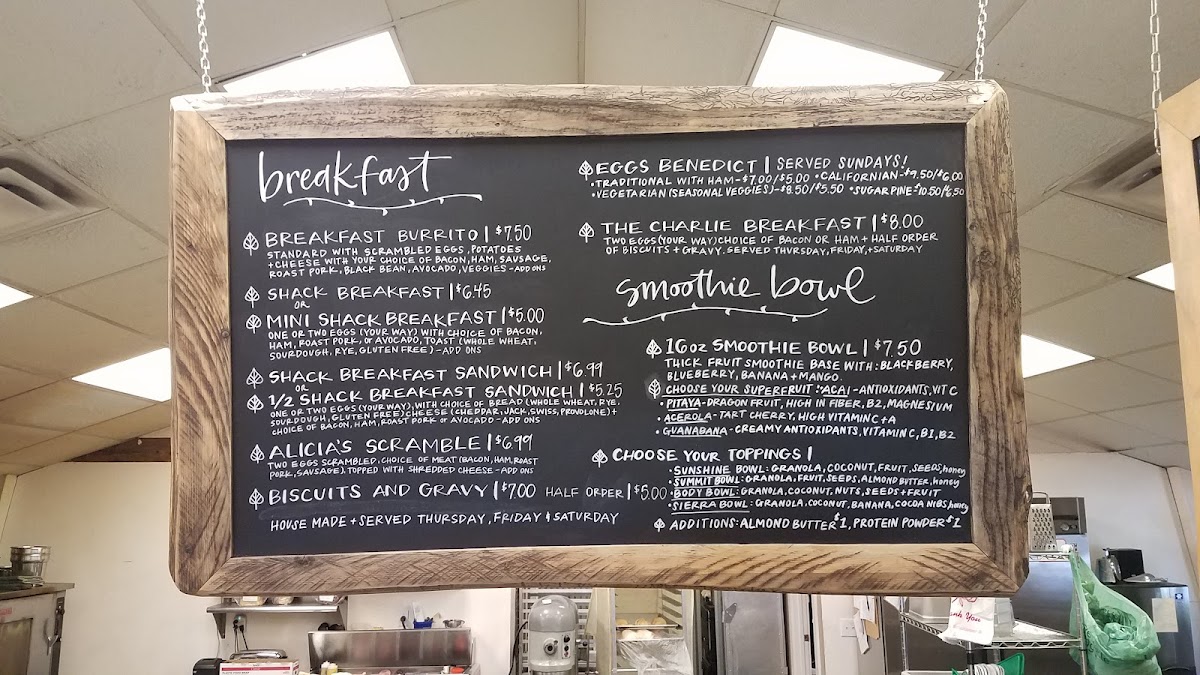 breakfast
BREAKFAST BURRITO | $7.50
STANDARD WITH SCRAMBLED EGGS, POTATOES
+ CHEESE WITH YOUR CHOICE OF BACON, HAM, SAUSAGE,
ROAST PORK, BLACK BEAN, AVOCADO, VEGGIES - ADD ONS
SHACK BREAKFAST | $6.45
OR
MINI SHACK BREAKFAST | $5.00
ONE OR TWO EGGS (YOUR WAY) WITH CHOICE OF BACON,
HAM, ROAST PORK, OR AVOCADO, TOAST (WHOLE WHEAT,
SOURDOUGH, RYE, GLUTEN FREE) - ADD ONS
SHACK BREAKFAST SANDWICH | $6.99
OR
1/2 SHACK BREAKFAST SANDWICH | $5.25
ONE OR TWO EGGS (YOUR WAY) WITH CHOICE OF BREAD (WHOLE WHEAT, RYE,
SOURDOUGH, GLUTEN FREE) CHEESE (CHEDDAR, JACK, SWISS, PROVOLONE) +
CHOICE OF BACON, HAM, ROAST PORK OR AVOCADO - ADD ONS
ALICIA'S SCRAMBLE | $6.99
TWO EGGS SCRAMBLED, CHOICE OF MEAT (BACON, HAM, ROAST
PORK, SAUSAGE). TOPPED WITH SHREDDED CHEESE - ADD ONS
BISCUITS AND GRAVY | $7.00 HALF ORDER | $5.00
HOUSE MADE + SERVED THURSDAY, FRIDAY & SATURDAY
EGGS BENEDICT | SERVED SUNDAYS!
• TRADITIONAL WITH HAM - $7.00/$5.00 • CALIFORNIAN - $9.50/$6.00
• VEGETARIAN (SEASONAL VEGGIES) - $8.50/$5.50 • SUGARPINE - $10.50/$6.50
THE CHARLIE BREAKFAST | $8.00
TWO EGGS (YOUR WAY) CHOICE OF BACON OR HAM + HALF ORDER
OF BISCUITS + GRAVY. SERVED THURSDAY, FRIDAY, + SATURDAY
smoothie bowl
16 OZ SMOOTHIE BOWL | $7.50
THICK FRUIT SMOOTHIE BASE WITH: BLACKBERRY,
BLUEBERRY, BANANA + MANGO.
CHOOSE YOUR SUPERFRUIT: • ACAI - ANTIOXIDANTS, VIT C
• PITAYA - DRAGON FRUIT, HIGH IN FIBER, B2, MAGNESIUM
• ACEROLA - TART CHERRY, HIGH VITAMIN C + A
• GUANABANA - CREAMY ANTIOXIDANTS, VITAMIN C, B1, B2
CHOOSE YOUR TOPPINGS |
• SUNSHINE BOWL: GRANOLA, COCONUT, FRUIT, SEEDS, honey
• SUMMIT BOWL: GRANOLA, FRUIT, SEEDS, ALMOND BUTTER, honey
• BODY BOWL: GRANOLA, COCONUT, NUTS, SEEDS + FRUIT
• SIERRA BOWL: GRANOLA, COCONUT, BANANA, COCOA NIBS, honey
ADDITIONS: ALMOND BUTTER $1, PROTEIN POWDER $1